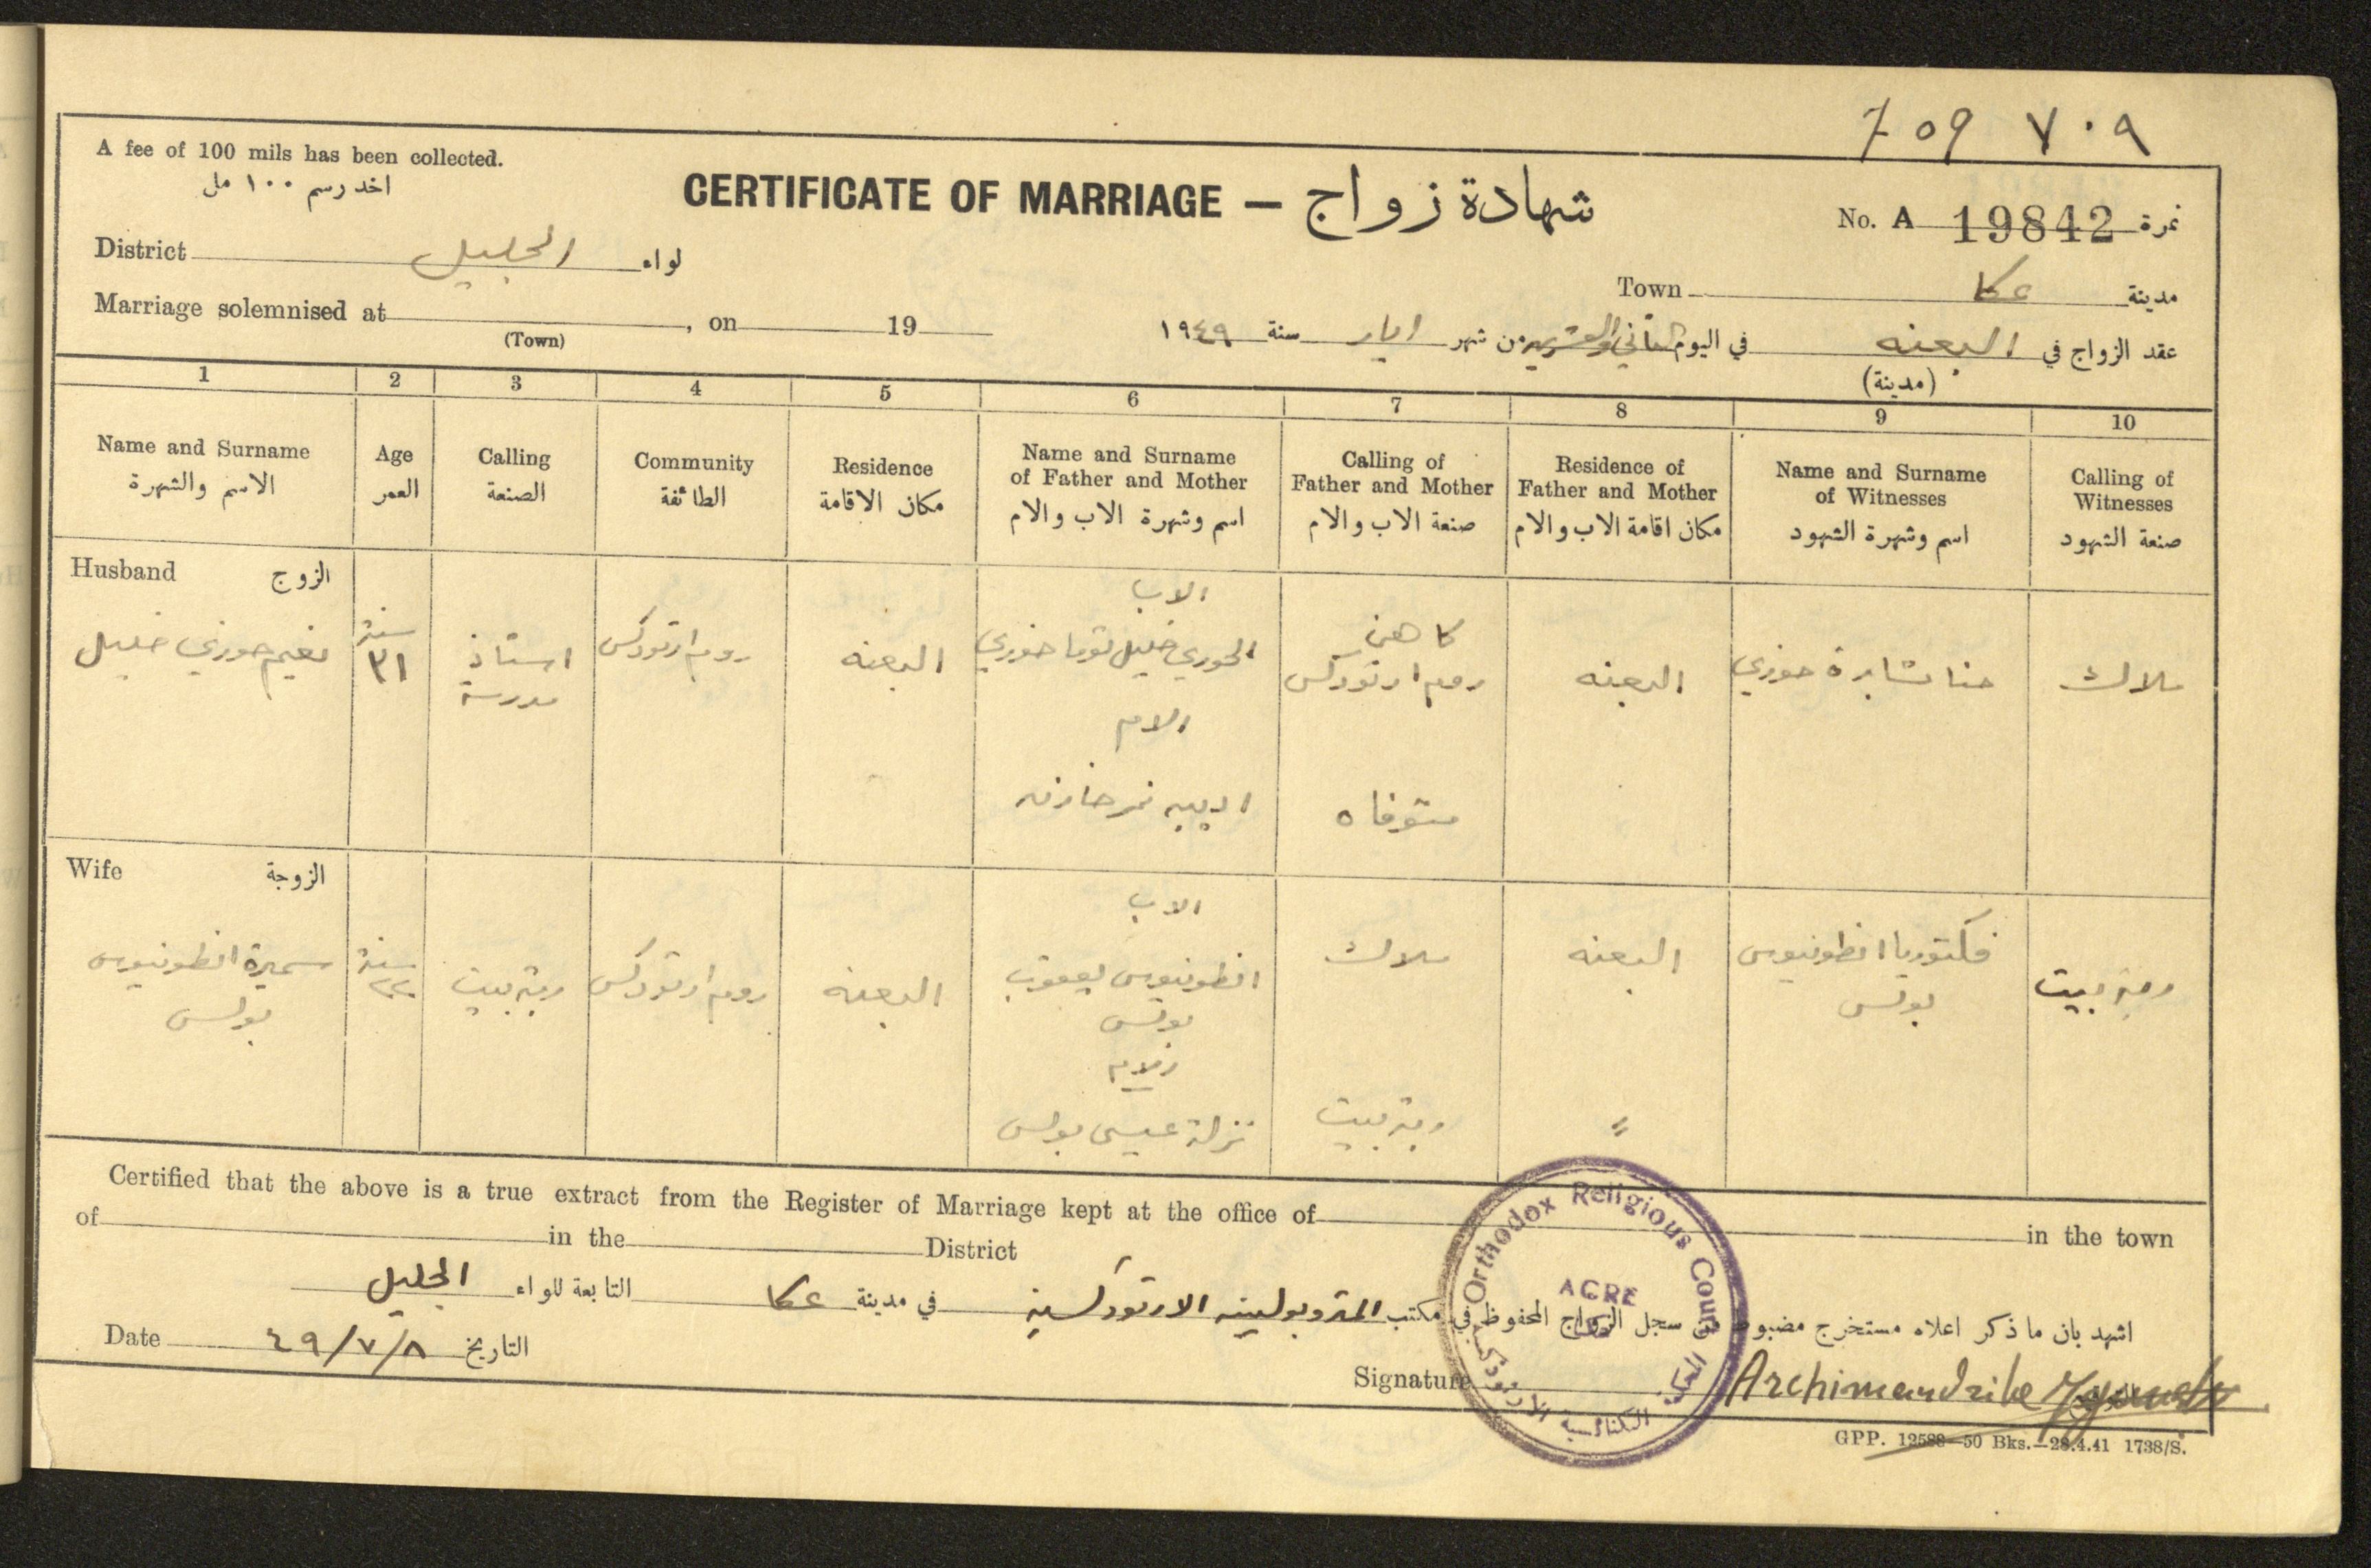 7 09 ٧٠٩
A fee of 100 mils has been collected.
اخد رسم ١٠٠ مل
CERTIFICATE OF MARRIAGE — شهادة زواج
No. A 19842 نمرة
District الجليل لواء
Town عكا مدينة
Marriage solemnised at , on 19
(Town)
عقد الزواج في البعنه في اليوم الثاني والعشرين من شهر ايار سنة ١٩٤٩
(مدينة)
1 2 3 4 5 6 7 8 9 10
Name and Surname
الاسم والشهرة
Age
العمر
Calling
الصنعة
Community
الطائفة
Residence
مكان الاقامة
Name and Surname
of Father and Mother
اسم وشهرة الاب والام
Calling of
Father and Mother
صنعة الاب والام
Residence of
Father and Mother
مكان اقامة الاب والام
Name and Surname
of Witnesses
اسم وشهرة الشهود
Calling of
Witnesses
صنعة الشهود
Husband الزوج
نعيم خوري خليل
سنة
٣١
استاذ
مدرسة
روم ارتودكس
البعنه
الاب
الخوري خليل توما خوري
الام
اديبه نمر خازنه
كاهن
روم ارتودكس
متوفاه
البعنه
حنا بشارة خوري
ملاك
Wife الزوجة
سميرة انطونيوس
بولس
سنة
٢٢
ربة بيت
روم ارتودكس
البعنه
الاب
انطونيوس يعقوب
بولس
الام
نزلة عيسى بولس
ملاك
ربة بيت
البعنه
〃
فكتوريا انطونيوس
بولس
ربة بيت
Certified that the above is a true extract from the Register of Marriage kept at the office of in the town
of in the District
اشهد بان ما ذكر اعلاه مستخرج مضبوط من سجل الزواج المحفوظ في مكتب المتروبوليتيه الارتودكسيه في مدينة عكا التابعة للواء الجليل
Date ٤٩/٧/٨ التاريخ
Signature Archimandrite
Orthodox Religious Court
ACRE
عكا
المحكمة الكنائسية الارثوذكسية
GPP. 12588—50 Bks.—28.4.41 1738/S.